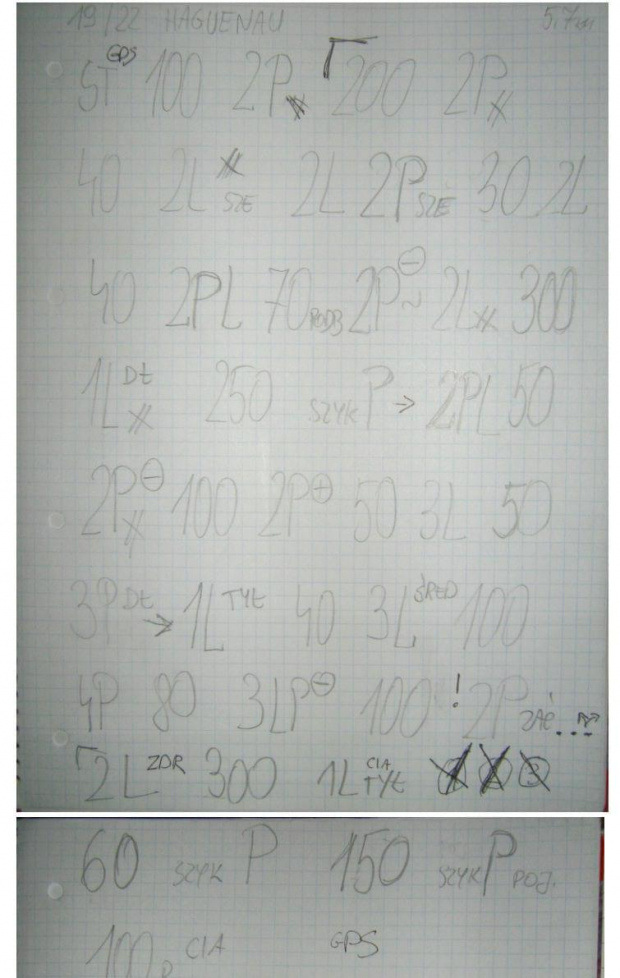 19/22 HAGUENAU 5.7km
ST GPS 100 2P 200 2P
40 2L SZE 2L 2P SZE 30 2L
40 2PL 70 PODB 2P⊖ ~ 2L 300
1L DŁ 250 SZYK P → 2PL 50
2P⊖ 100 2P⊕ 50 3L 50
3P DŁ → 1L TYŁ 40 3L ŚRED 100
4P 80 3LP⊖ 100 ! 2P ZAĆ...
2L ZDR 300 1L CIA TYŁ
60 SZYK P 150 SZYK P POJ.
100 CIA GPS